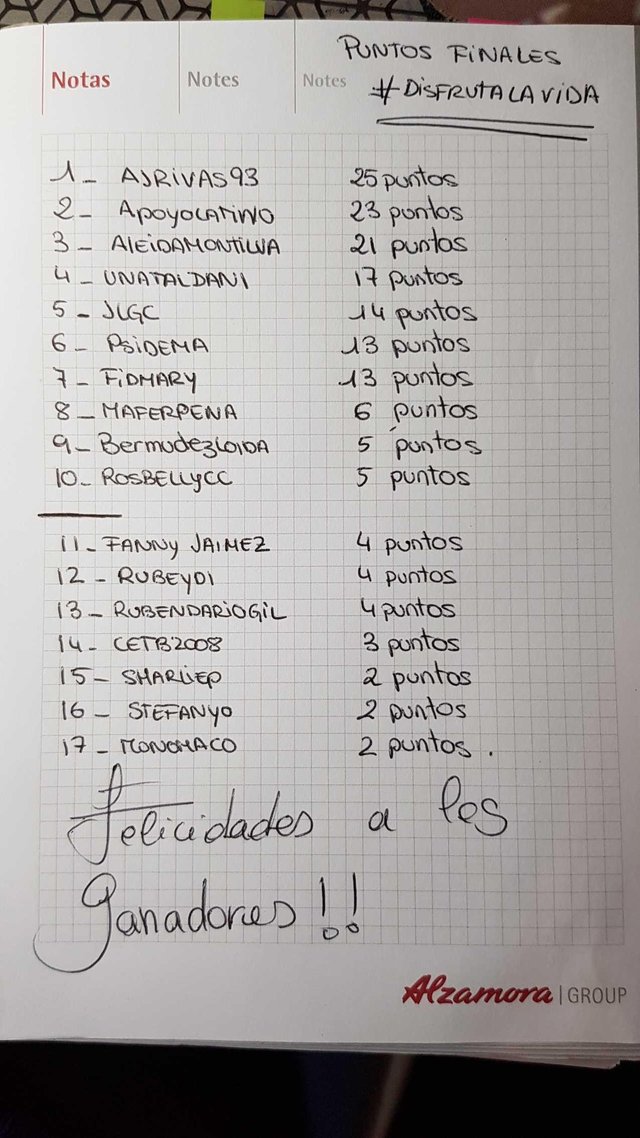 Notas Notes Notes
PUNTOS FINALES
#DISFRUTALAVIDA
1- AJRIVAS93 25 puntos
2- Apoyolatino 23 puntos
3- AleidaMontilva 21 puntos
4- UNATALDANI 17 puntos
5- JLGC 14 puntos
6- PSIDEMA 13 puntos
7- FIDMARY 13 puntos
8- MAFERPENA 6 puntos
9- Bermudezloida 5 puntos
10- ROSBELLYCC 5 puntos
11- FANNY JAIMEZ 4 puntos
12- RUBEYDI 4 puntos
13- RUBENDARIOGIL 4 puntos
14- CETB2008 3 puntos
15- SHARLIEP 2 puntos
16- STEFANYO 2 puntos
17- MONOMACO 2 puntos.
Felicidades a los
Ganadores!!
Alzamora | GROUP